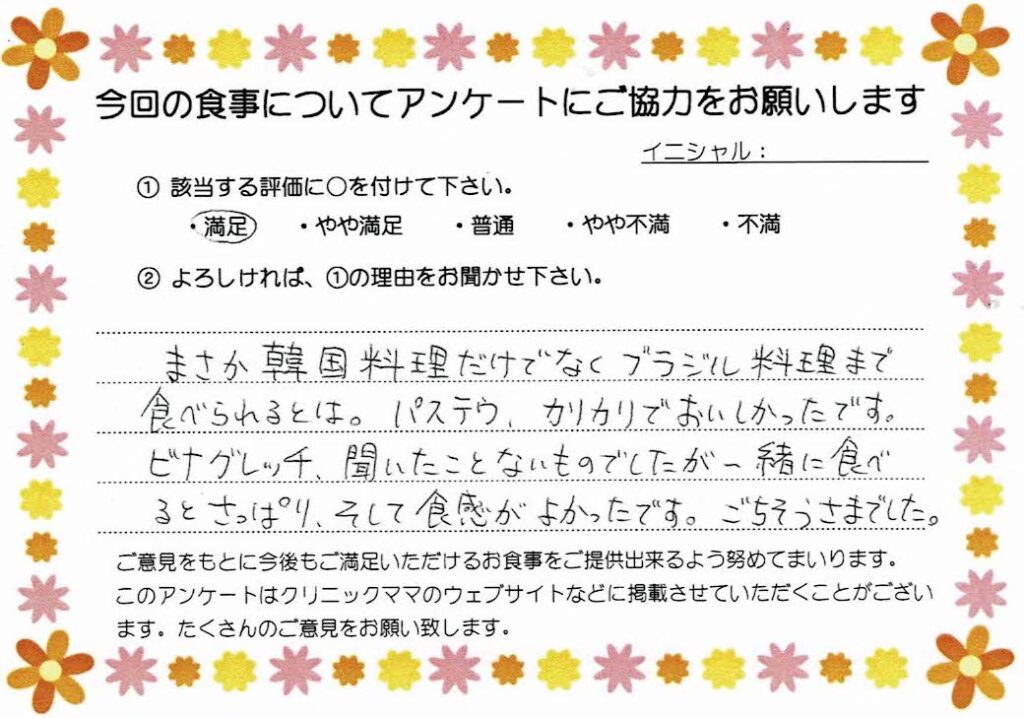 今回の食事についてアンケートにご協力をお願いします
イニシャル：
① 該当する評価に○を付けて下さい。
・満足 ・やや満足 ・普通 ・やや不満 ・不満
② よろしければ、①の理由をお聞かせ下さい。
まさか韓国料理だけでなくブラジル料理まで
食べられるとは。パステウ、カリカリでおいしかったです。
ビナグレッチ、聞いたことないものでしたが一緒に食べ
るとさっぱり、そして食感がよかったです。ごちそうさまでした。
ご意見をもとに今後もご満足いただけるお食事をご提供出来るよう努めてまいります。
このアンケートはクリニックママのウェブサイトなどに掲載させていただくことがござい
ます。たくさんのご意見をお願い致します。